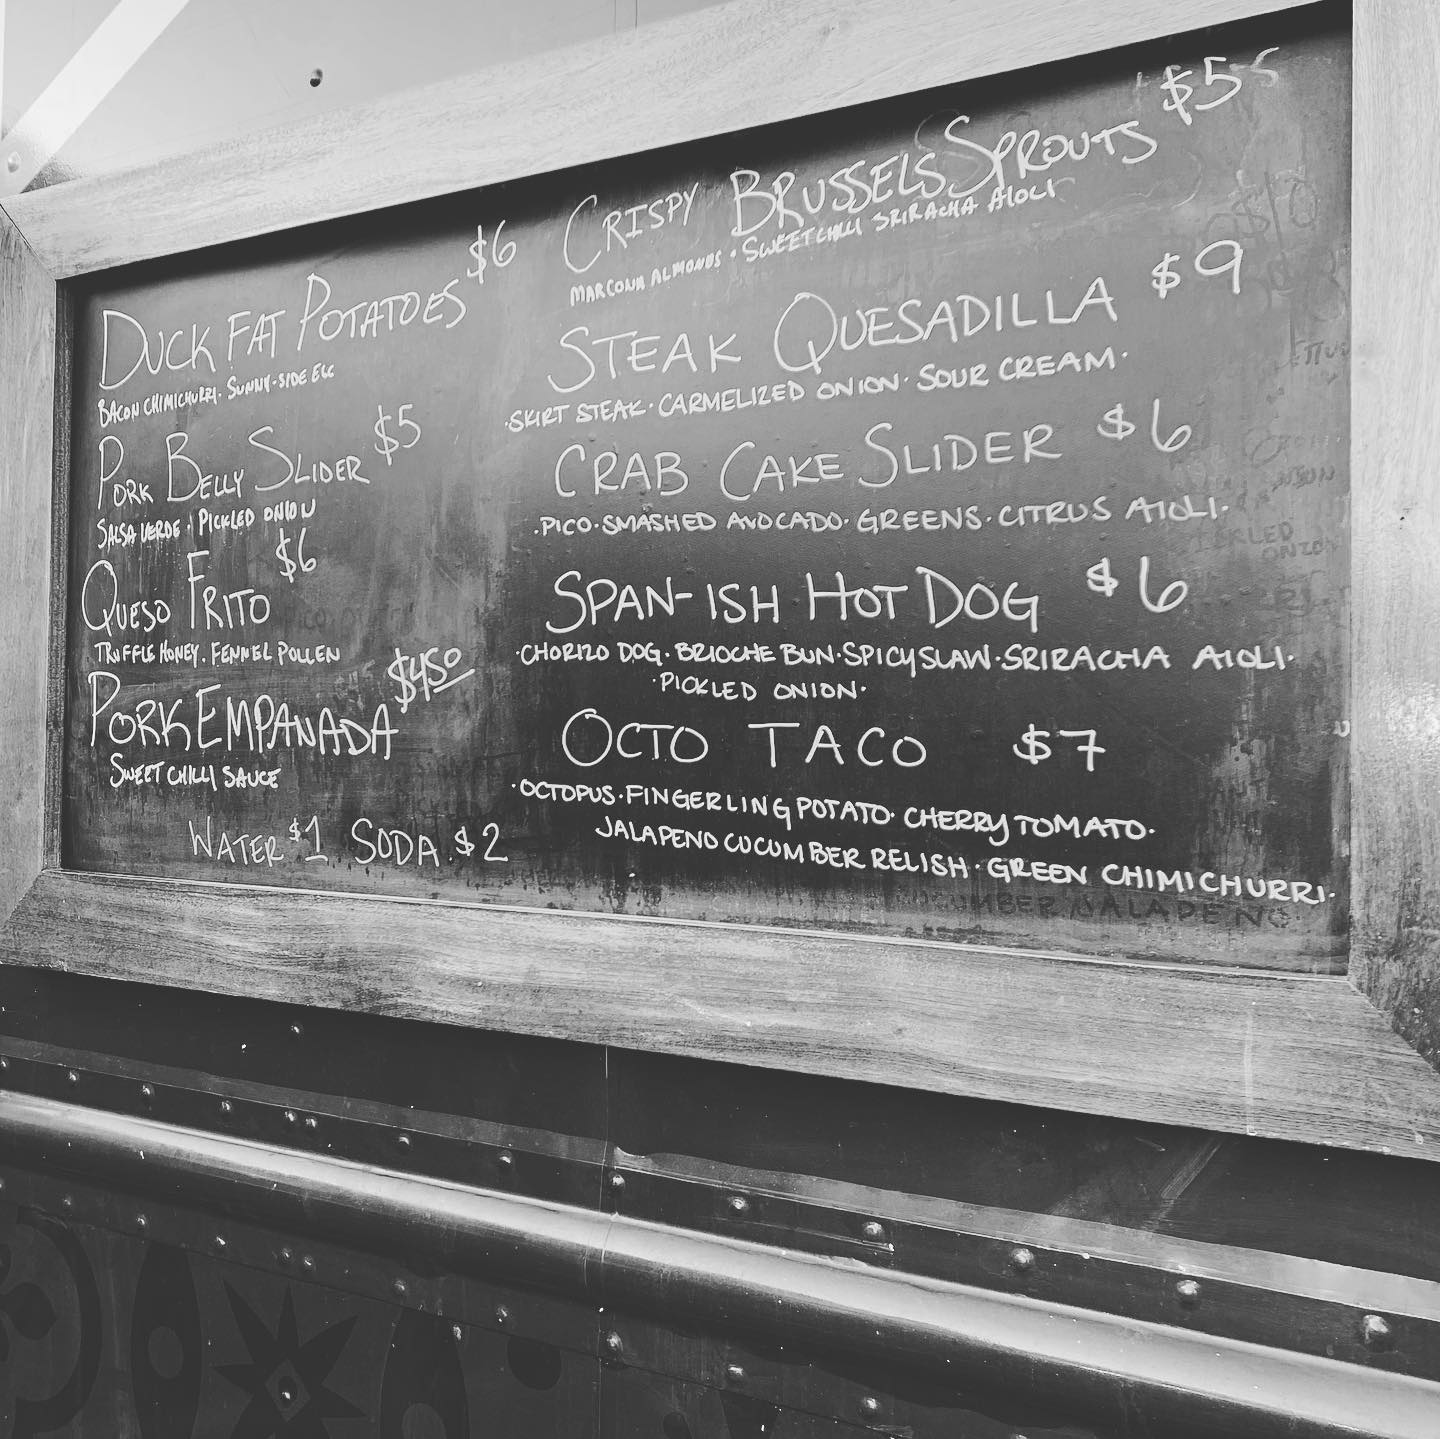 DUCK FAT POTATOES $6
BACON CHIMICHURRI. SUNNY-SIDE EGG
PORK BELLY SLIDER $5
SALSA VERDE · PICKLED ONION
QUESO FRITO $6
TRUFFLE HONEY. FENNEL POLLEN
PORK EMPANADA $4.50
SWEET CHILLI SAUCE
WATER $1 SODA $2
CRISPY BRUSSELS SPROUTS $5
MARCONA ALMONDS · SWEET CHILLI SRIRACHA AIOLI
STEAK QUESADILLA $9
·SKIRT STEAK· CARMELIZED ONION· SOUR CREAM·
CRAB CAKE SLIDER $6
·PICO·SMASHED AVOCADO· GREENS·CITRUS AIOLI·
SPAN-ISH HOT DOG $6
·CHORIZO DOG· BRIOCHE BUN·SPICY SLAW·SRIRACHA AIOLI·
·PICKLED ONION·
OCTO TACO $7
·OCTOPUS·FINGERLING POTATO· CHERRY TOMATO·
JALAPENO CUCUMBER RELISH· GREEN CHIMICHURRI·